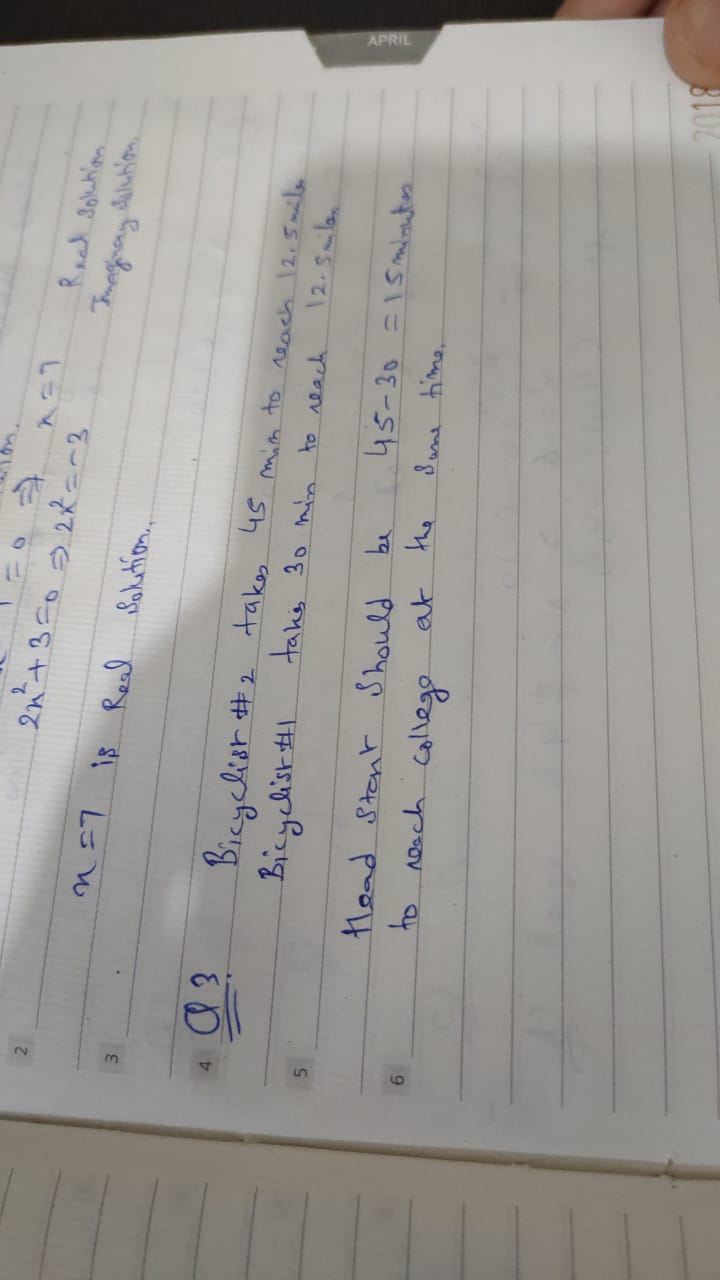 = 0 ⇒ x = 7
2x² + 3 = 0 ⇒ 2x² = -3
Real Solution
Imaginary Solution.
x = 7 is Real Solution.
Q3
Bicyclist #2 takes 45 min to reach 12.5 miles
Bicyclist #1 take 30 min to reach 12.5 miles
Head Start Should be 45 - 30 = 15 minutes
to reach college at the Same time.
APRIL
2018
2
3
4
5
6